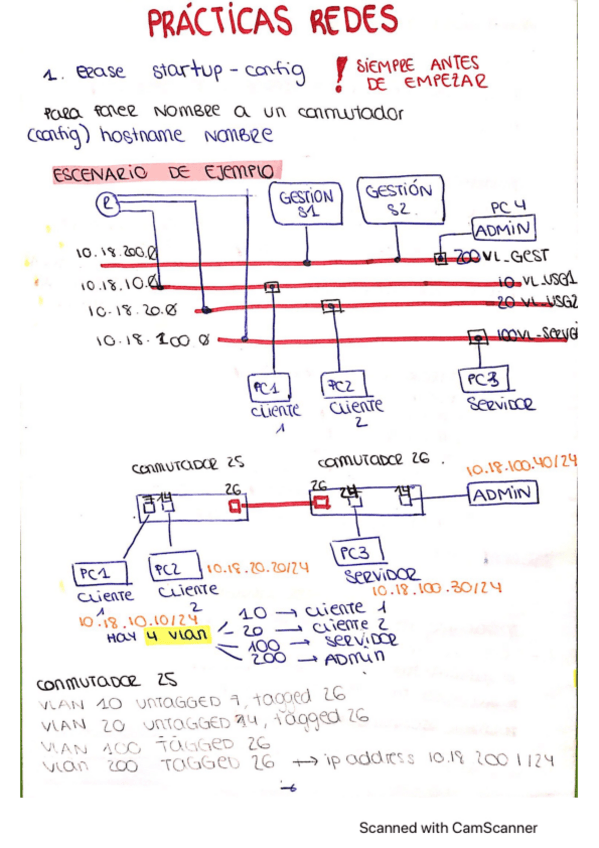 PRÁCTICAS REDES
1. erase startup-config ! SIEMPRE ANTES
DE EMPEZAR
Para poner NOMBRE a un conmutador
(config) hostname NOMBRE
ESCENARIO DE EJEMPLO
R
GESTION
S1
GESTIÓN
S2.
PC4
ADMIN
10.18.200.0
200 VL_GEST
10.18.10.0
10 VL_USG1
10.18.20.0
20 VL_USG2
10.18.100 0
100 VL_SERVG
PC1
PC2
PC3
Cliente
1
Cliente
2
Servidor
conmutador 25
conmutador 26.
10.18.100.40/24
7 14
26
26
24
14
ADMIN
PC1
PC2
10.18.20.20/24
PC3
Cliente
1
Cliente
2
Servidor
10.18.100.30/24
10.18.10.10/24
Hay 4 vlan
10 → cliente 1
20 → cliente 2
100 → servidor
200 → Admin
conmutador 25
VLAN 10 UNTAGGED 7, tagged 26
VLAN 20 UNTAGGED 14, tagged 26
VLAN 100 TAGGED 26
vlan 200 TAGGED 26 → ip address 10.18 200 1/24
Scanned with CamScanner